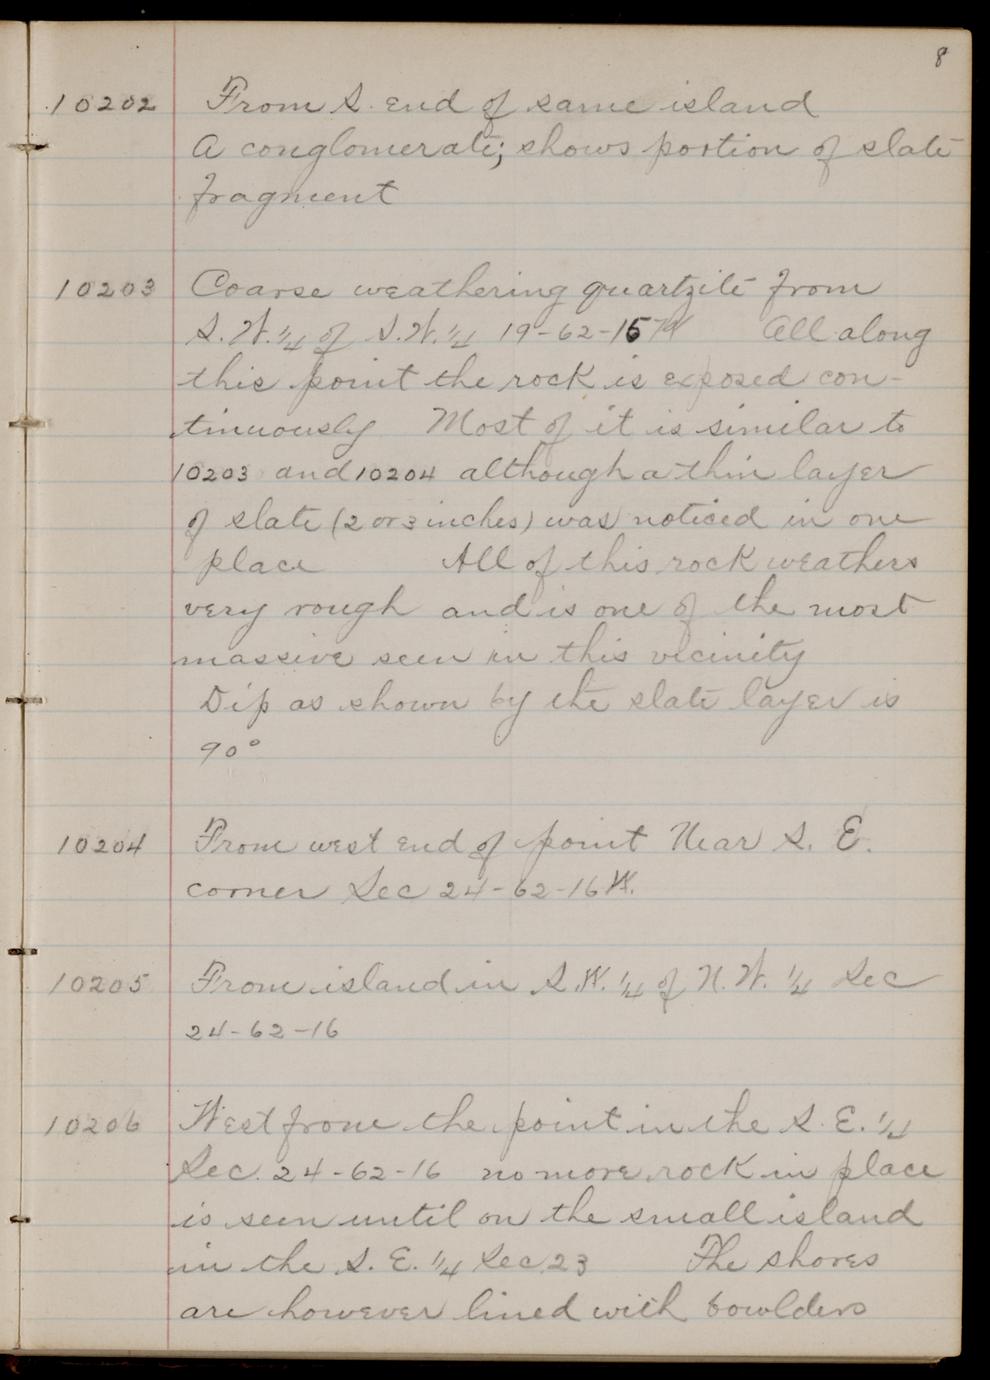 8
10202 From S. end of same island
A conglomerate; shows portion of slate
fragment
10203 Coarse weathering quartzite from
S.W.¼ of S.W.¼ 19-62-15W All along
this point the rock is exposed con-
tinuously Most of it is similar to
10203 and 10204 although a thin layer
of slate (2 or 3 inches) was noticed in one
place All of this rock weathers
very rough and is one of the most
massive seen in this vicinity
Dip as shown by the slate layer is
90°
10204 From west end of point Near S. E.
corner Sec 24-62-16W.
10205 From island in S.W.¼ of N.W.¼ Sec
24-62-16
10206 West from the point in the S.E.¼
Sec. 24-62-16 no more rock in place
is seen until on the small island
in the S.E.¼ Sec.23 The shores
are however lined with bowlders